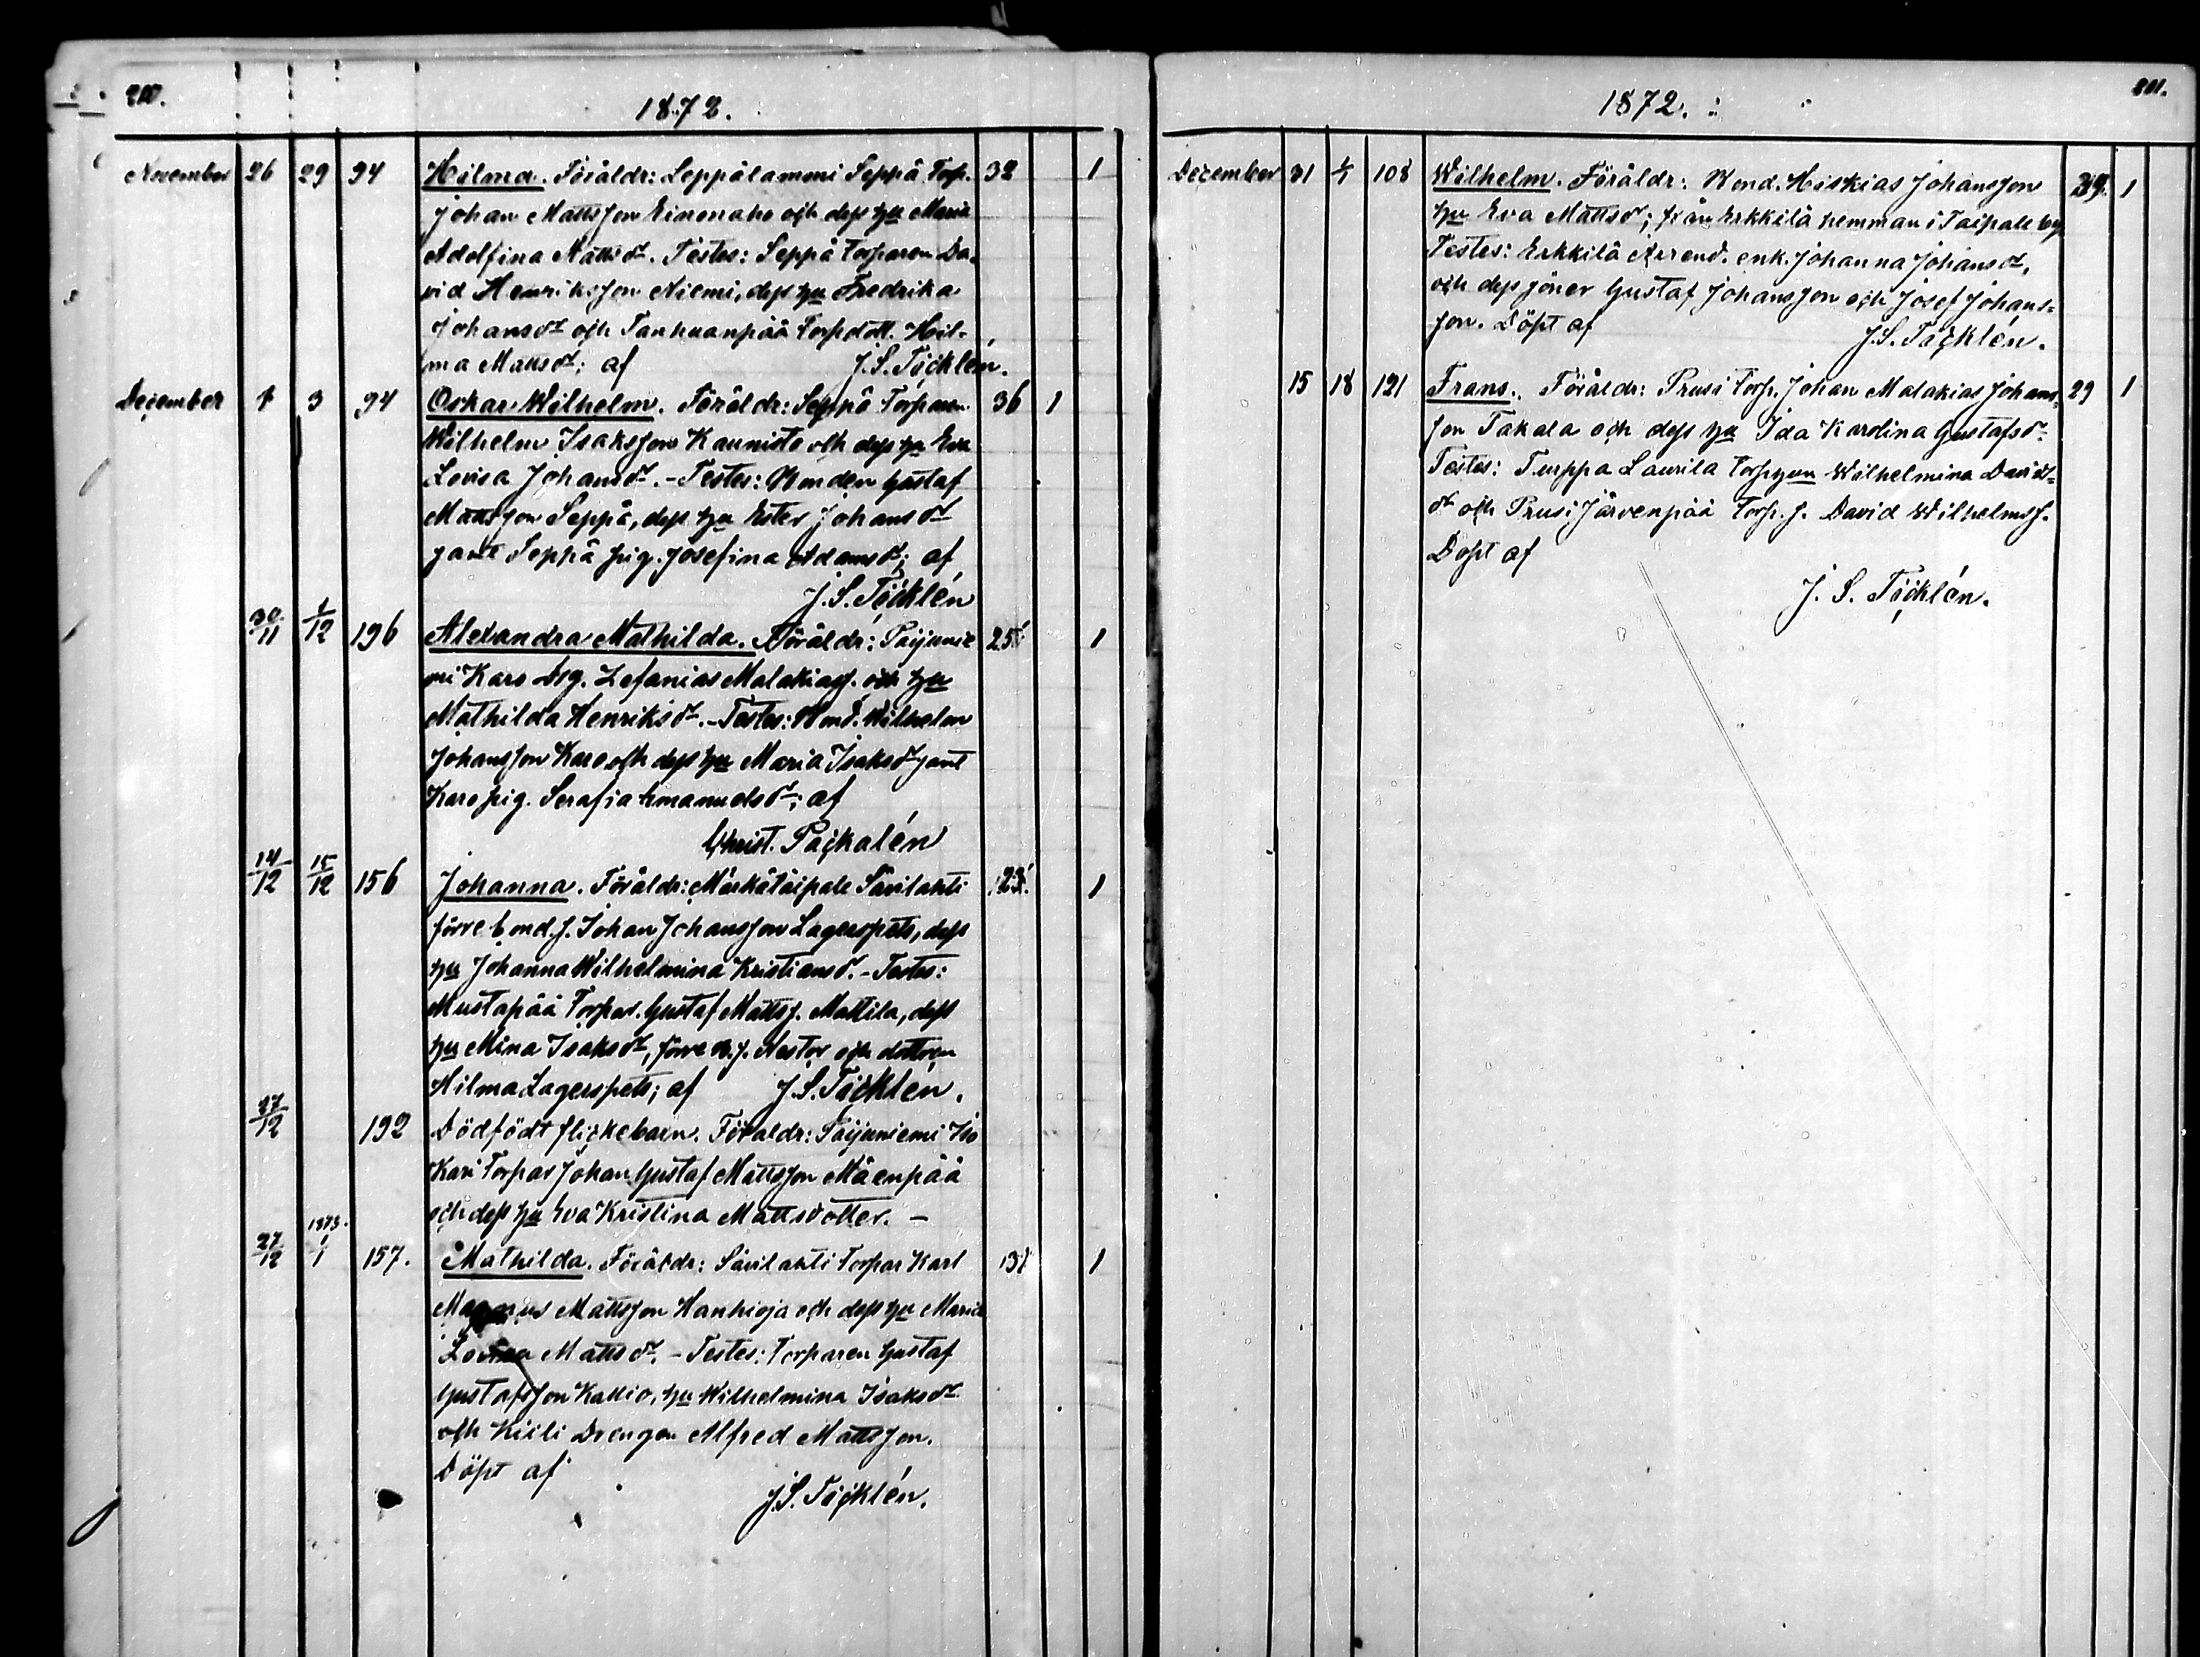 210.
1872.
November 26 29 94 Hilma. Föräldr: Leppälammi Seppä Torp. 32 1
Johan Mattsson Einonaho och dess hu Maria
Adolfina Mattsdr. Testes: Seppä Torparen Da-
vid Henriksson Niemi, dess hu Fredrika
Johansdr och Tanhuanpää Torpdott. Hil-
ma Mattsdr; af J. S. Täcklén.
December 1 3 94 Oskar Wilhelm. Föräldr: Seppä Torparen 36 1
Wilhelm Isaksson Kaunisto och dess hu Eva
Lovisa Johansdr. - Testes: Bonden Gustaf
Mattsson Seppä, dess hu Ester Johansdr
samt Seppä pig. Josefina Adamsdr; af
J. S. Täcklén
30/11 1/12 196 Alexandra Mathilda. Föräldr: Saijanie 25 1
mi Karo drg. Zefanias Malakiass. och hu
Mathilda Henriksdr. - Testes: Bond. Wilhelm
Johansson Karo och dess hu Maria Isaksdr samt
Karo pig. Serafia Emanuelsdr; af
Christ. Packalén
14/12 15/12 156 Johanna. Föräldr: Märkätaipale Särilahti 23 1
förre bond. s. Johan Johansson Lagerspets, dess
hu Johanna Wilhelmina Kristiansdr. - Testes:
Mustapää Torpar. Gustaf Mattss. Mattila, dess
hu Mina Isaksdr, förre b. s. Nestor och dottren
Hilma Lagerspets; af J. S. Täcklén.
27/12 192 Dödfödt flickebarn. Föraldr: Saijaniemi Iso
Kari Torpar Johan Gustaf Mattsson Mäenpää
och dess hu Eva Kristina Mattsdotter. -
27/12 1873. 1/1 157. Mathilda. Föräldr: Särilahti Torpar Karl 31 1
Magnus Mattsson Hanhioja och dess hu Maria
Lovisa Mattsdr. - Testes: Torparen Gustaf
Gustafsson Kallio, hu Wilhelmina Isaksdr
och Kiili Drengen Alfred Mattsson.
Döpt af
J. S. Täcklén.
211.
1872.
December 31 1/1 108 Wilhelm. Föräldr: Bond. Hiskias Johansson 29. 1
hu Eva Mattsdr; från Erkkilä hemman i Taipale by
Testes: Erkkilä Arrend. enk. Johanna Johansdr,
och dess söner Gustaf Johansson och Josef Johans-
son. Döpt af J. S. Täcklén.
15 18 121 Frans. Föräldr: Prusi Torp. Johan Malakias Johans- 29 1
son Takala och dess hu Ida Karolina Gustafsdr
Testes: Turppa Laurila Torp hun Wilhelmina Davids-
dr och Prusi Järvenpää Torp. s. David Wilhelmss.
Döpt af
J. S. Täcklén.